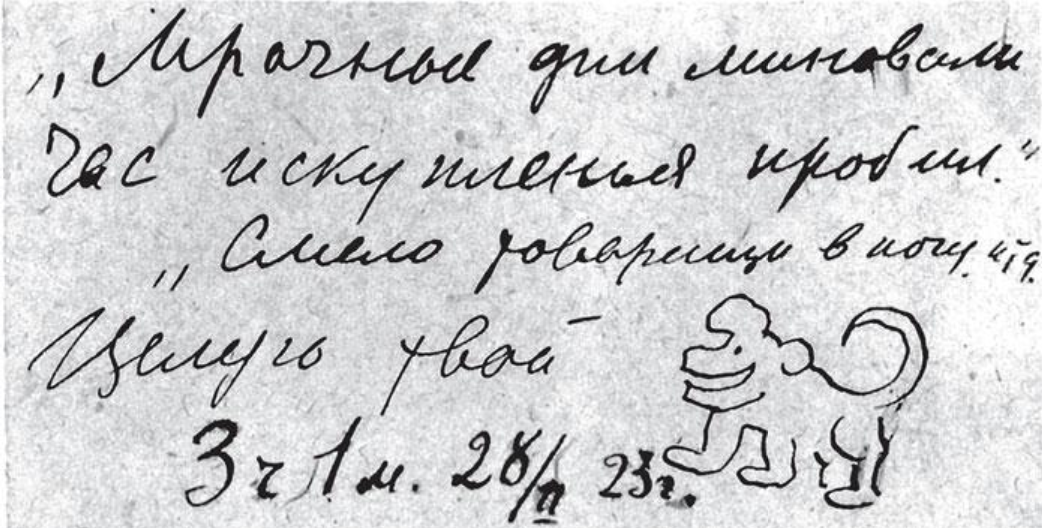 „Мрачные дни миновали
Час искупленья пробил."
„Смело товарищи в ногу." и т д.
Целую твой
3 ч 1 м. 28/II 23 г.